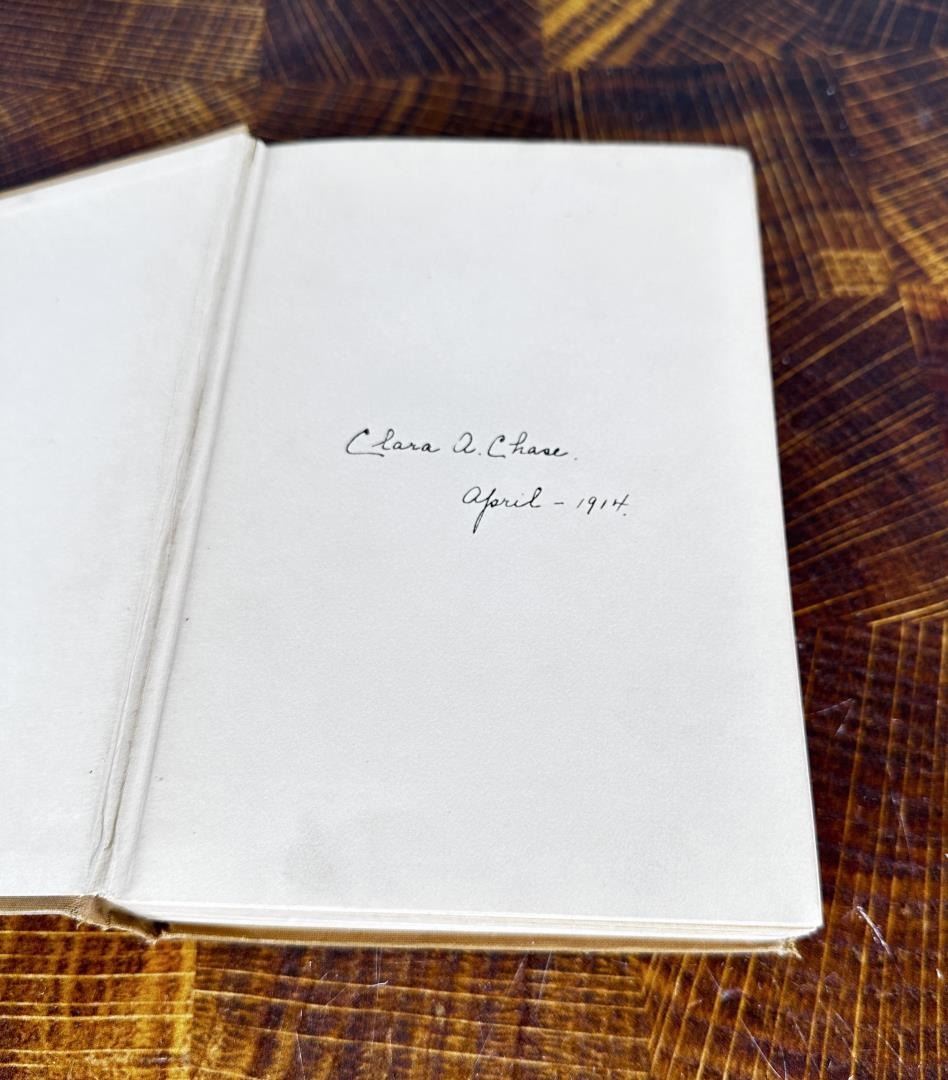 Clara A. Chase.
April - 1914.